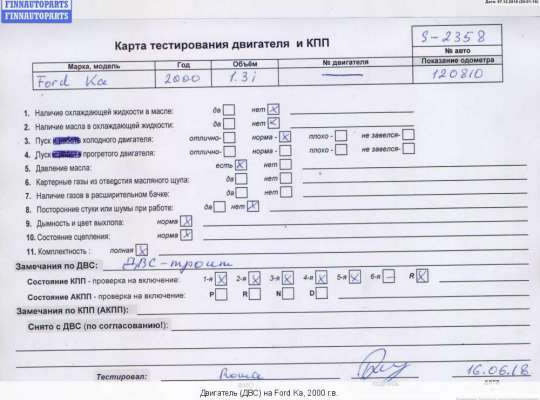 FINNAUTOPARTS
FINNAUTOPARTS
FINNAUTOPARTS
Карта тестирования двигателя и КПП
S-2358
№ авто
Марка, модель Год Объём № двигателя Показание одометра
Ford Ka 2000 1.3i — 120810
1. Наличие охлаждающей жидкости в масле: да нет X
2. Наличие масла в охлаждающей жидкости: да нет X
3. Пуск холодного двигателя: отлично- норма - X плохо - не завелся-
4. Пуск прогретого двигателя: отлично- норма - плохо - не завелся-
5. Давление масла: есть X нет
6. Картерные газы из отверстия масляного щупа: да нет
7. Наличие газов в расширительном бачке: да нет
8. Посторонние стуки или шумы при работе: да нет X
9. Дымность и цвет выхлопа: норма X
10. Состояние сцепления: норма X
11. Комплектность : полная X
Замечания по ДВС: ДВС-троит
Состояние КПП - проверка на включение: 1-я X 2-я X 3-я X 4-я X 5-я X 6-я — R X
Состояние АКПП - проверка на включение: P R N D
Замечания по КПП (АКПП):
Снято с ДВС (по согласованию!):
Тестировал: Рома 16.06.18
дата
Двигатель (ДВС) на Ford Ka, 2000 г.в.